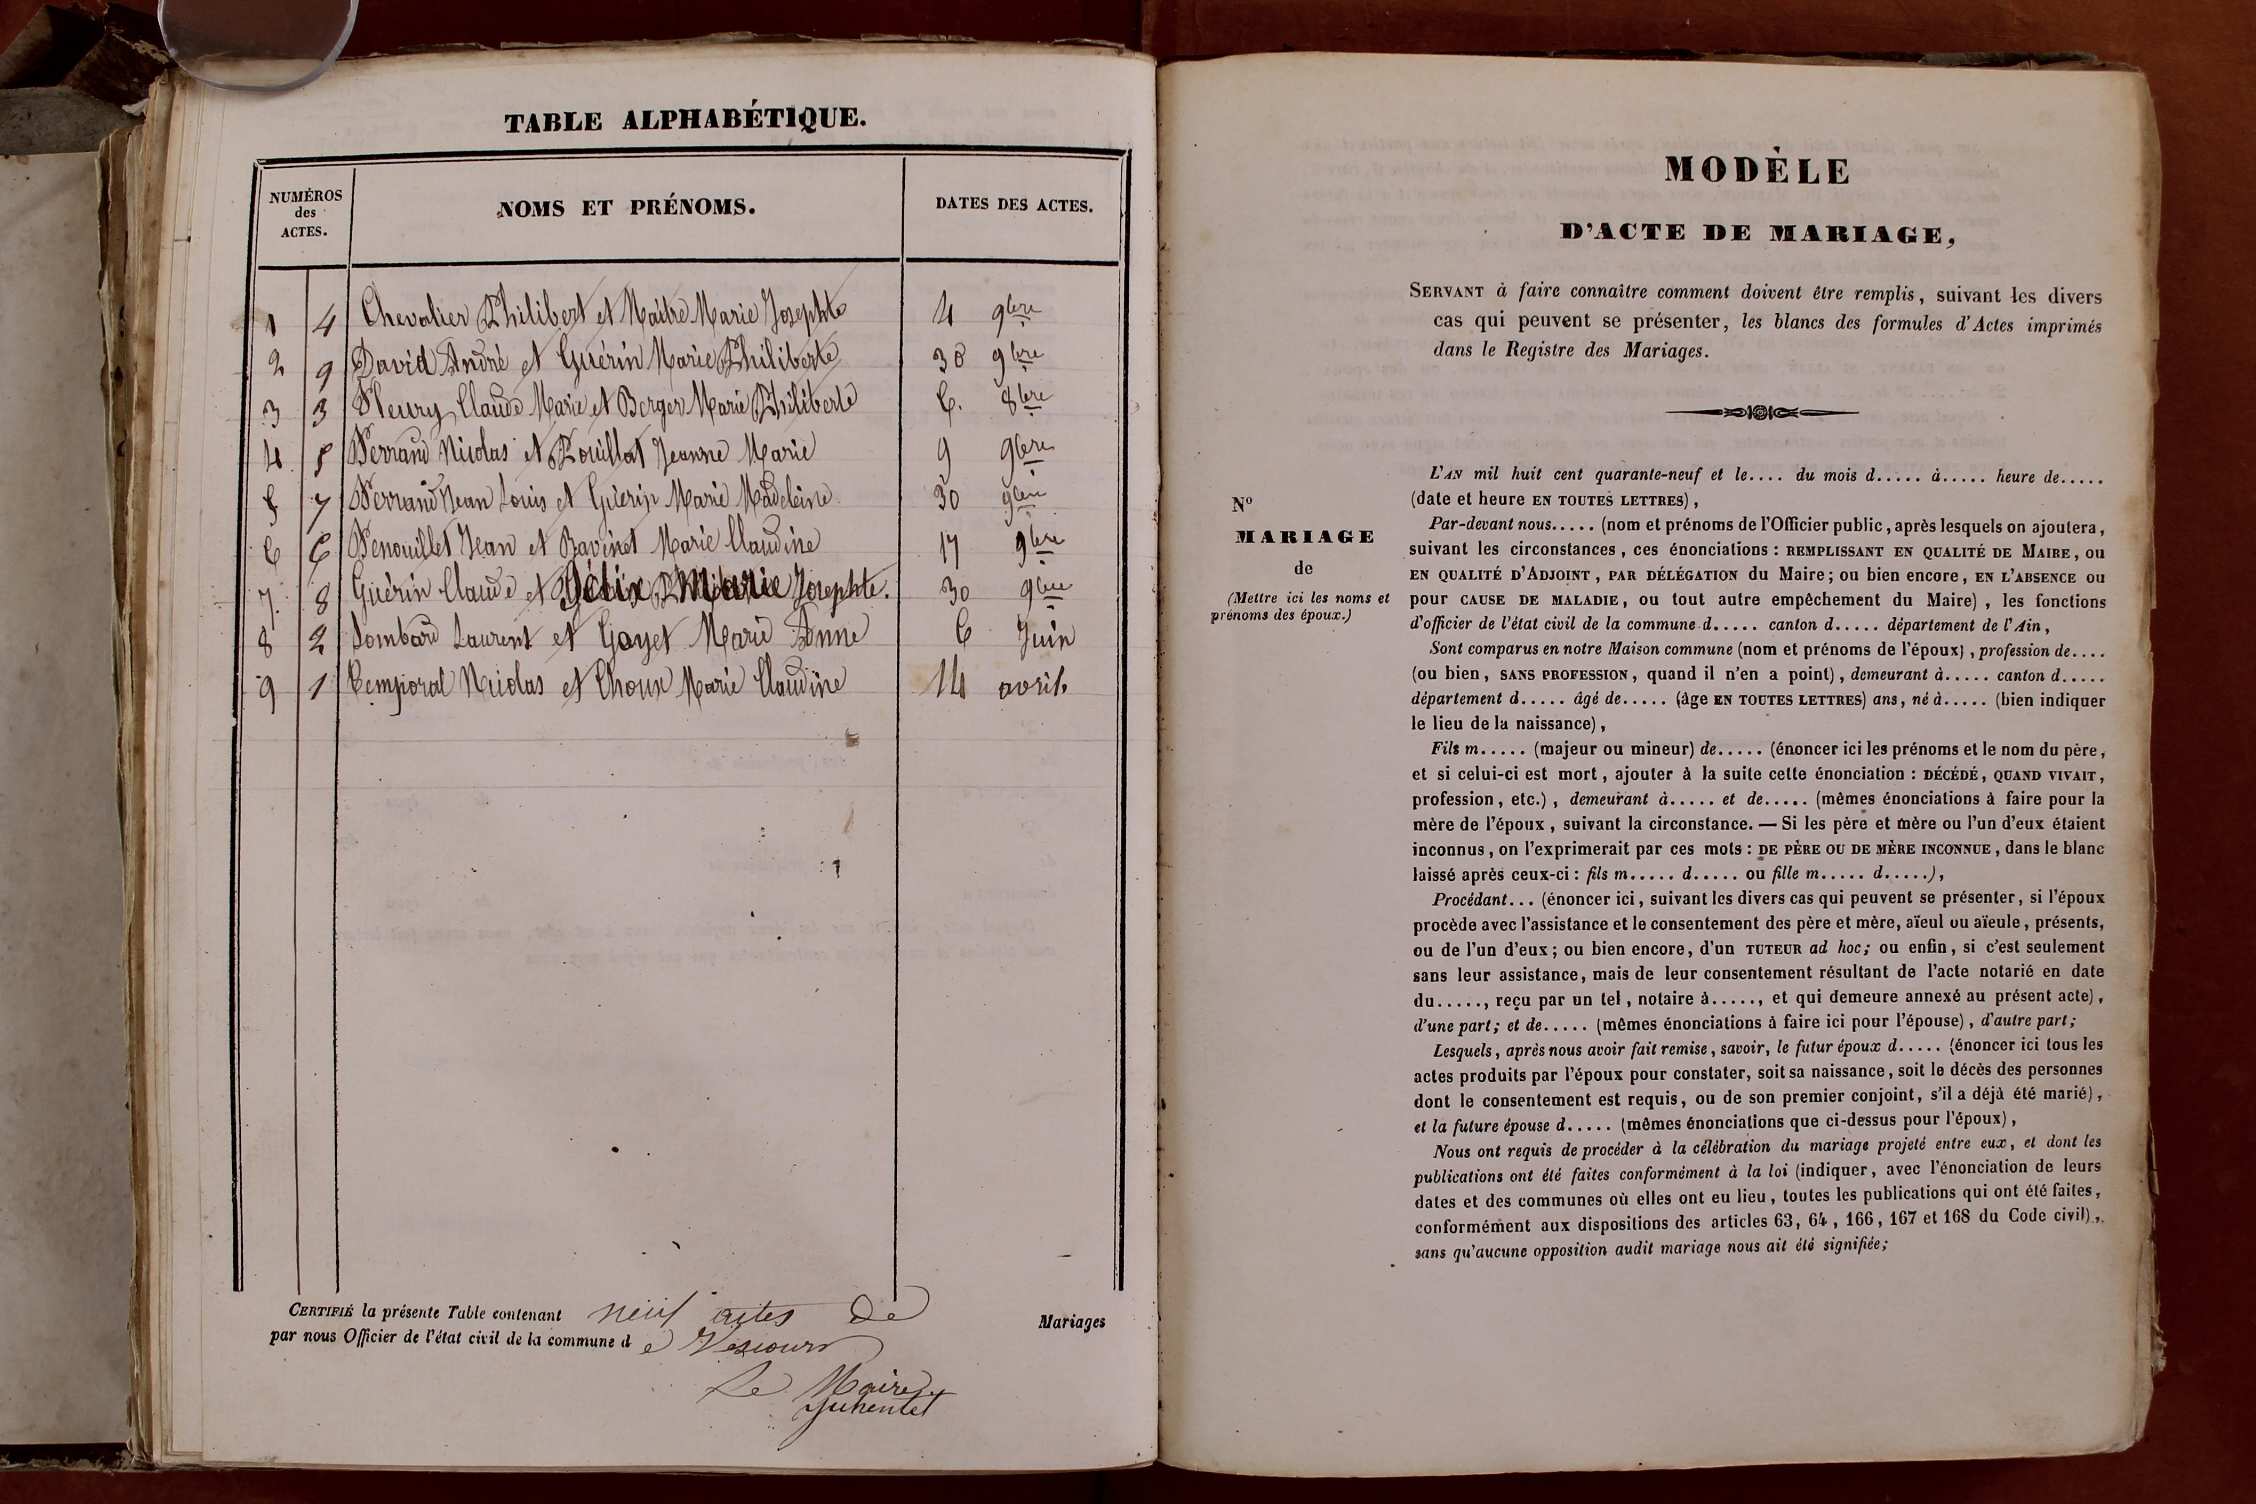 TABLE ALPHABÉTIQUE.
NUMÉROS des ACTES.
NOMS ET PRÉNOMS.
DATES DES ACTES.
1 4 Chevalier Philibert et Maître Marie Josephte 4 9bre
2 9 David André et Guérin Marie Philiberte 30 9bre
3 3 Fleury Claude Marie et Berger Marie Philiberte 6. 8bre
4 5 Ferrand Nicolas et Pouillat Jeanne Marie 9 9bre
5 7 Ferrand Jean Louis et Guérin Marie Madeleine 30 9bre
6 6 Fenouillet Jean et Bavinet Marie Claudine 17 9bre
7. 8 Guérin Claude et Félix Marie Josephte. 30 9bre
8 2 Lombard Laurent et Goyet Marie Anne 6 Juin
9 1 Temporal Nicolas et Choux Marie Claudine 14 avril.
CERTIFIÉ la présente Table contenant neuf actes de Mariages
par nous Officier de l'état civil de la commune de Vescours
Le Maire
MODÈLE
D'ACTE DE MARIAGE,
SERVANT à faire connaître comment doivent être remplis, suivant les divers
cas qui peuvent se présenter, les blancs des formules d'Actes imprimés
dans le Registre des Mariages.
No
MARIAGE
de
(Mettre ici les noms et
prénoms des époux.)
L'AN mil huit cent quarante-neuf et le.... du mois d..... à..... heure de.....
(date et heure EN TOUTES LETTRES),
Par-devant nous..... (nom et prénoms de l'Officier public, après lesquels on ajoutera,
suivant les circonstances, ces énonciations : REMPLISSANT EN QUALITÉ DE MAIRE, ou
EN QUALITÉ D'ADJOINT, PAR DÉLÉGATION du Maire; ou bien encore, EN L'ABSENCE ou
pour CAUSE DE MALADIE, ou tout autre empêchement du Maire), les fonctions
d'officier de l'état civil de la commune d..... canton d..... département de l'Ain,
Sont comparus en notre Maison commune (nom et prénoms de l'époux), profession de....
(ou bien, SANS PROFESSION, quand il n'en a point), demeurant à..... canton d.....
département d..... âgé de..... (âge EN TOUTES LETTRES) ans, né à..... (bien indiquer
le lieu de la naissance),
Fils m..... (majeur ou mineur) de..... (énoncer ici les prénoms et le nom du père,
et si celui-ci est mort, ajouter à la suite cette énonciation : DÉCÉDÉ, QUAND VIVAIT,
profession, etc.), demeurant à..... et de..... (mêmes énonciations à faire pour la
mère de l'époux, suivant la circonstance. — Si les père et mère ou l'un d'eux étaient
inconnus, on l'exprimerait par ces mots : DE PÈRE OU DE MÈRE INCONNUE, dans le blanc
laissé après ceux-ci : fils m..... d..... ou fille m..... d.....),
Procédant... (énoncer ici, suivant les divers cas qui peuvent se présenter, si l'époux
procède avec l'assistance et le consentement des père et mère, aïeul ou aïeule, présents,
ou de l'un d'eux; ou bien encore, d'un TUTEUR ad hoc; ou enfin, si c'est seulement
sans leur assistance, mais de leur consentement résultant de l'acte notarié en date
du....., reçu par un tel, notaire à....., et qui demeure annexé au présent acte),
d'une part; et de..... (mêmes énonciations à faire ici pour l'épouse), d'autre part;
Lesquels, après nous avoir fait remise, savoir, le futur époux d..... (énoncer ici tous les
actes produits par l'époux pour constater, soit sa naissance, soit le décès des personnes
dont le consentement est requis, ou de son premier conjoint, s'il a déjà été marié),
et la future épouse d..... (mêmes énonciations que ci-dessus pour l'époux),
Nous ont requis de procéder à la célébration du mariage projeté entre eux, et dont les
publications ont été faites conformément à la loi (indiquer, avec l'énonciation de leurs
dates et des communes où elles ont eu lieu, toutes les publications qui ont été faites,
conformément aux dispositions des articles 63, 64, 166, 167 et 168 du Code civil),
sans qu'aucune opposition audit mariage nous ait été signifiée;